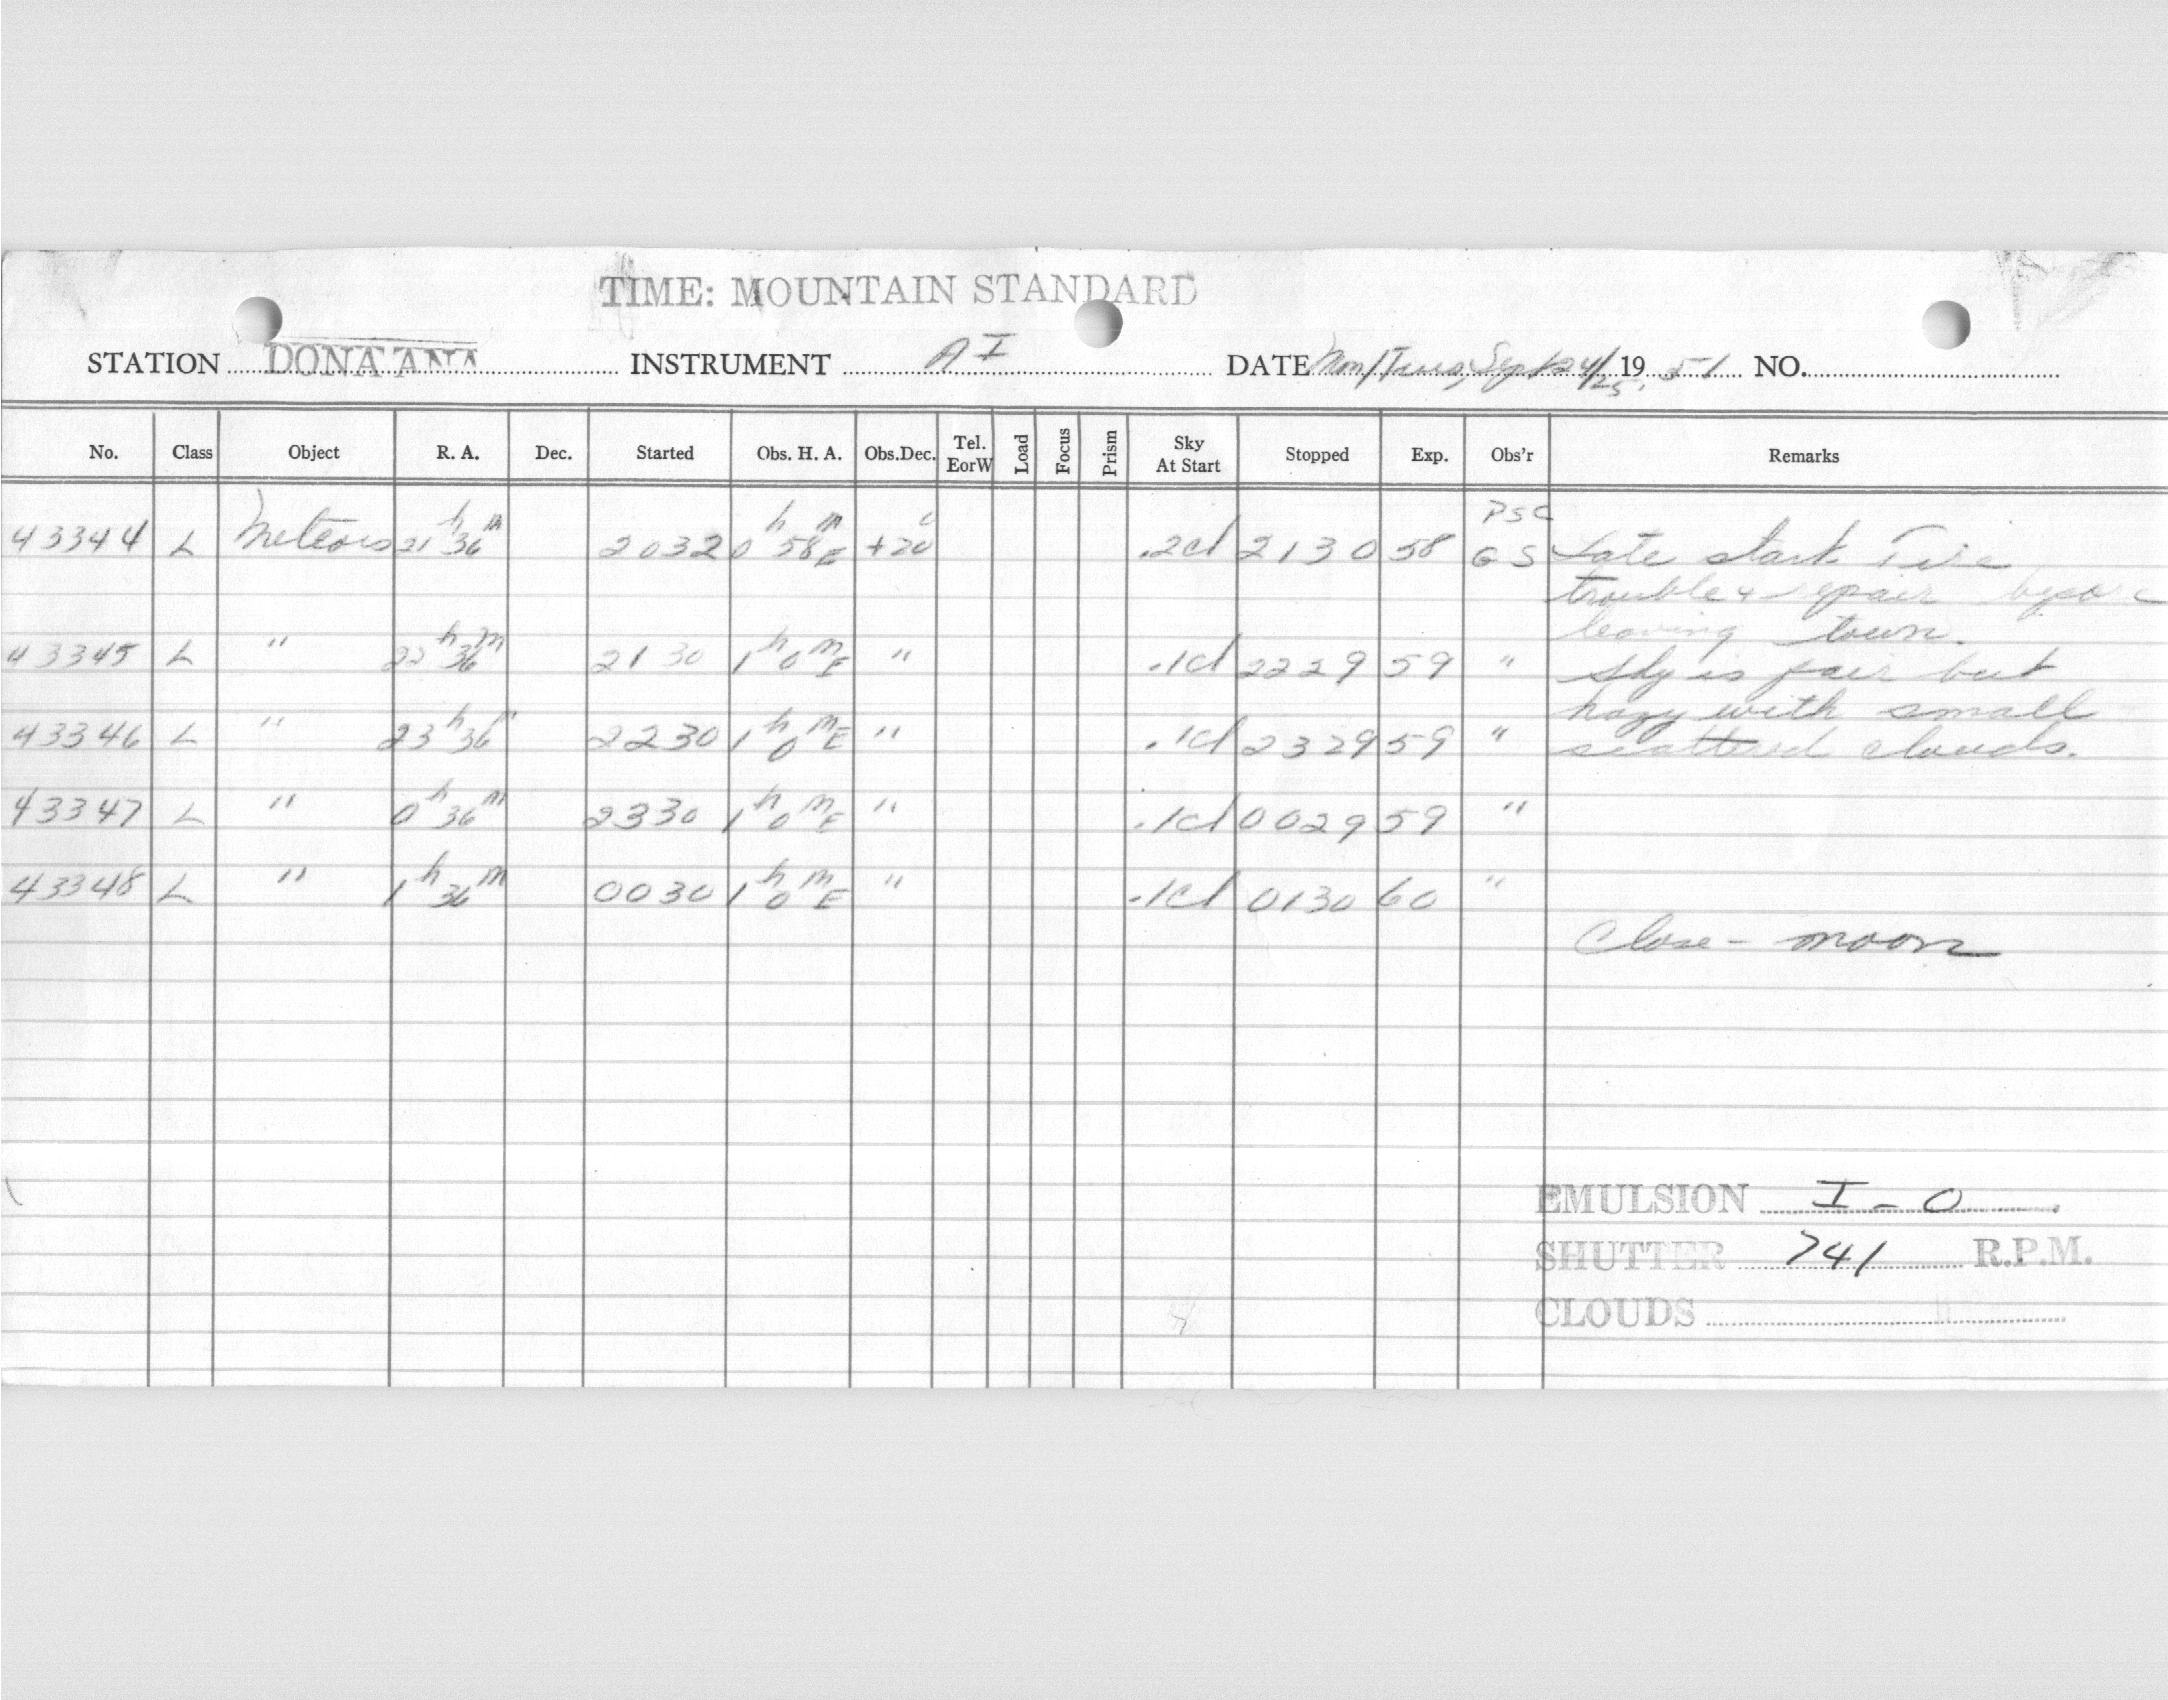 TIME: MOUNTAIN STANDARD
STATION DONA ANA INSTRUMENT A I DATE Mon/Tues, Sept 24/25, 1951 NO.
No. Class Object R. A. Dec. Started Obs. H. A. Obs.Dec. Tel. EorW Load Focus Prism Sky At Start Stopped Exp. Obs'r Remarks
43344 L Meteors 21h 36m 2032 0h 58m E +20° .2cl 2130 58 PSC GS Late start. Tire
trouble & repair before
leaving town.
43345 L " 22h 36m 2130 1h 0m E " .1cl 2229 59 " Sky is fair but
hazy with small
43346 L " 23h 36m 2230 1h 0m E " .1cl 2329 59 " scattered clouds.
43347 L " 0h 36m 2330 1h 0m E " .1cl 0029 59 "
43348 L " 1h 36m 0030 1h 0m E " .1cl 0130 60 "
Close - moon
EMULSION I - O
SHUTTER 741 R.P.M.
CLOUDS